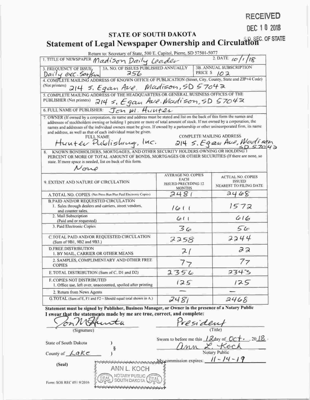 RECEIVED
DEC 10 2018
SEC OF STATE
STATE OF SOUTH DAKOTA
Statement of Legal Newspaper Ownership and Circulation
Return to: Secretary of State, 500 E. Capitol, Pierre, SD 57501-5077
1. TITLE OF NEWSPAPER Madison Daily Leader
2. DATE 10/1/18
3. FREQUENCY OF ISSUE Daily exc. Sat/Sun
3A. NO. OF ISSUES PUBLISHED ANNUALLY 256
3B. ANNUAL SUBSCRIPTION PRICE $ 102
4. COMPLETE MAILING ADDRESS OF KNOWN OFFICE OF PUBLICATION (Street, City, County, State and ZIP+4 Code)
(Not printer) 214 S. Egan Ave. Madison, SD 57042
5. COMPLETE MAILING ADDRESS OF THE HEADQUARTERS OR GENERAL BUSINESS OFFICES OF THE
PUBLISHER (Not printer) 214 S. Egan Ave. Madison, SD 57042
6. FULL NAME OF PUBLISHER: Jon M. Hunter
7. OWNER (If owned by a corporation, its name and address must be stated and also on the back of this form the names and
addresses of stockholders owning or holding 1 percent or more of total amount of stock. If not owned by a corporation, the
names and addresses of the individual owners must be given. If owned by a partnership or other unincorporated firm, its name
and address, as well as that of each individual must be given.)
FULL NAME COMPLETE MAILING ADDRESS
Hunter Publishing, Inc. 214 S. Egan Ave, Madison SD 57042
8. KNOWN BONDHOLDERS, MORTGAGEES, AND OTHER SECURITY HOLDERS OWNING OR HOLDING 1
PERCENT OR MORE OF TOTAL AMOUNT OF BONDS, MORTGAGES OR OTHER SECURITIES (If there are none, so
state. If more space is needed, list on back of this form.
None
9. EXTENT AND NATURE OF CIRCULATION
AVERAGE NO. COPIES EACH ISSUE DURING PRECEDING 12 MONTHS
ACTUAL NO. COPIES ISSUED NEAREST TO FILING DATE
A. TOTAL NO. COPIES 2481 2468
B. PAID AND/OR REQUESTED CIRCULATION
1. Sales through dealers and carriers, street vendors, and counter sales. 1611 1572
2. Mail Subscription (Paid and or requested) 611 616
3. Paid Electronic Copies 36 56
C. TOTAL PAID AND/OR REQUESTED CIRCULATION (Sum of 9B1, 9B2 and 9B3) 2258 2244
D. FREE DISTRIBUTION
1. BY MAIL, CARRIER OR OTHER MEANS 21 22
2. SAMPLES, COMPLIMENTARY AND OTHER FREE COPIES 77 77
E. TOTAL DISTRIBUTION (Sum of C, D1 and D2) 2356 2343
F. COPIES NOT DISTRIBUTED
1. Office use, left over, unaccounted, spoiled after printing 125 125
2. Return from News Agents
G. TOTAL (Sum of E, F1 and F2 - Should equal total shown in A) 2481 2468
Statement must be signed by Publisher, Business Manager, or Owner in the presence of a Notary Public
I swear that the statements made by me are true, correct, and complete:
Jon M Hunter President
(Signature) (Title)
State of South Dakota )
Sworn to before me this 1st day of Oct. 2018.
County of Lake )
Ann L. Koch
Notary Public
(Seal)
My commission expires: 11-14-19
ANN L. KOCH
NOTARY PUBLIC
SOUTH DAKOTA
SEAL